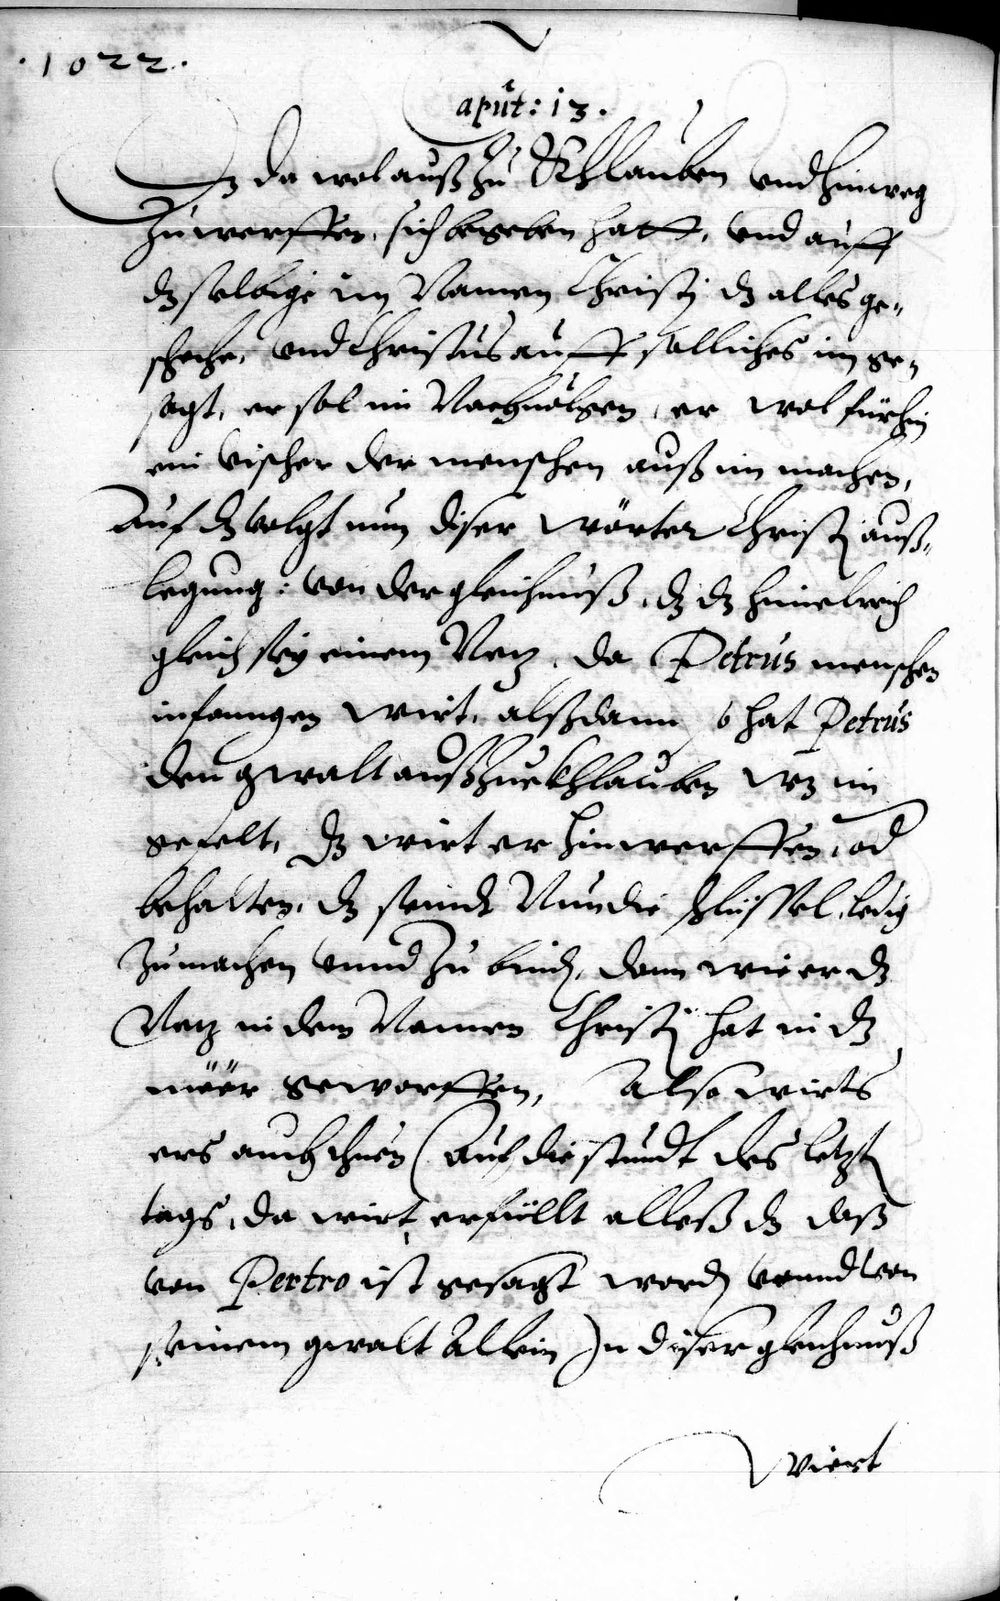 .1022.
aput: 13.
da wol auß zu Khlauben vnd hinweg
Zu werffen, sich begeben hatt, vnd auff
dz selbige im Namen Christj dz alles ge-
schehe, vnd Christus auff solliches im ge-
sagt, er sol im Nachuolgen, er wol fürhin
ein vischer der menschen auß im machen,
Auf dz volgt nun diser wörter Christj auß-
legung: von der gleichnuß, dz dz himelreich
gleich sey einem Netz, da Petrus menschen
infanngen wirt, alßdann hat Petrus
den gwalt außzuekhlauben wz im
gefelt, dz wirt er hinwerffen, od
behalten, dz seindt Nun die schlüssel, ledig
Zumachen vnnd Zu bind, dann wie er dz
Netz in dem Namen Christj hat in dz
möör geworffen, Also wirts
ers auch thuen (Auf die stundt des letzt
tags, da wirt erfüllt alleß dz daß
von Pertro ist gesagt word vnnd von
seinem gwalt Allein) In diser gleichnuß
Wiert